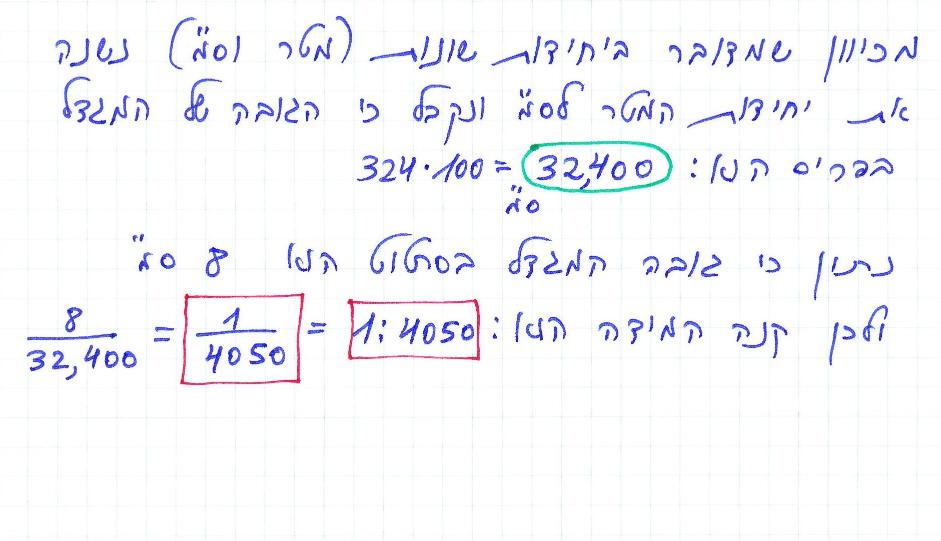 מכיוון שמדובר ביחידות שונות (מטר וסמ") נשנה
את יחידות המטר לסמ" ונקבל כי הגובה של המגדל
בפריס הוא: 324·100 = 32,400
סמ"
נתון כי גובה המגדל בסרטוט הוא 8 סמ"
ולכן קנה המידה הוא: 8/32,400 = 1/4050 = 1:4050